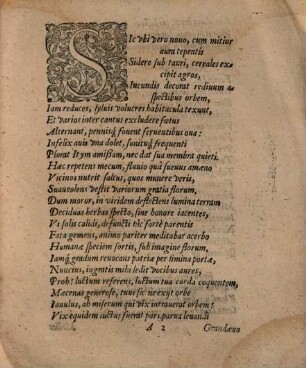 SIc vbi vero nouo, cum mitior
aura tepentis
Sidere sub tauri, cereales ex-
cipit agros,
Iucundis decorat rediuum a-
spectibus orbem,
Iam reduces, syluis volucres habitacula texunt,
Et varios inter cantus excludere fœtus
Alternant, pennisq́ fouent feruentibus oua:
Infelix auis vna dolet, sonituq́ frequenti
Plorat Ityn amissam, nec dat sua membra quieti.
Hac repetens mecum, fluuio quà suauus amœno
Vicinos nutrit saltus, quos munere veris,
Suaueolens vestit variorum gratia florum,
Dum moror, in viridem deflectens lumina terram
Deciduas herbas specto, sine honore iacentes,
Vi solis calidi, defuncti tĩc fortè parentis
Fata gemens, animo pariter meditabar acerbo
Humanæ speciem sortis, sub imagine florum,
Iamq́ gradum reuocans patriæ per limina portæ,
Nuncius, ingentis mihi lædit vocibus aures,
Proh: luctum referens, luctum tua corda coquentem,
Mæcenas generose, tuus sic ne exijt orbe
Ianulus, ab miserum qui vix intrauerat orbem?
Vix equidem luctus fuerat pars parua leuandi
A 2 Grandæuo